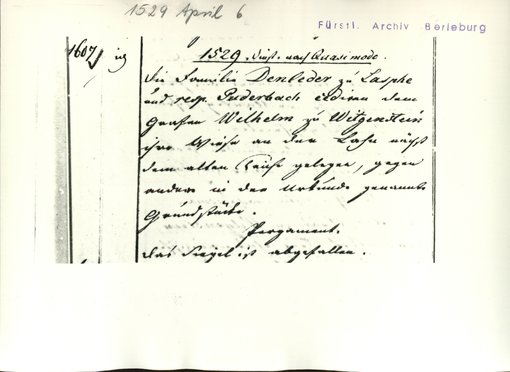 1529 April 6
Fürstl. Archiv Berleburg
1607
1529. Dinst. nach Quasimodo.
Die Familie Denleder zu Lasphe
und resp. Puderbach cediren dem
Grafen Wilhelm zu Witgenstein
ihre Wiese an der Lahn nächst
dem alten gelegen, gegen
andere in der Urkunde genannte
Grundstücke.
Pergament.
Das Siegel ist abgefallen.